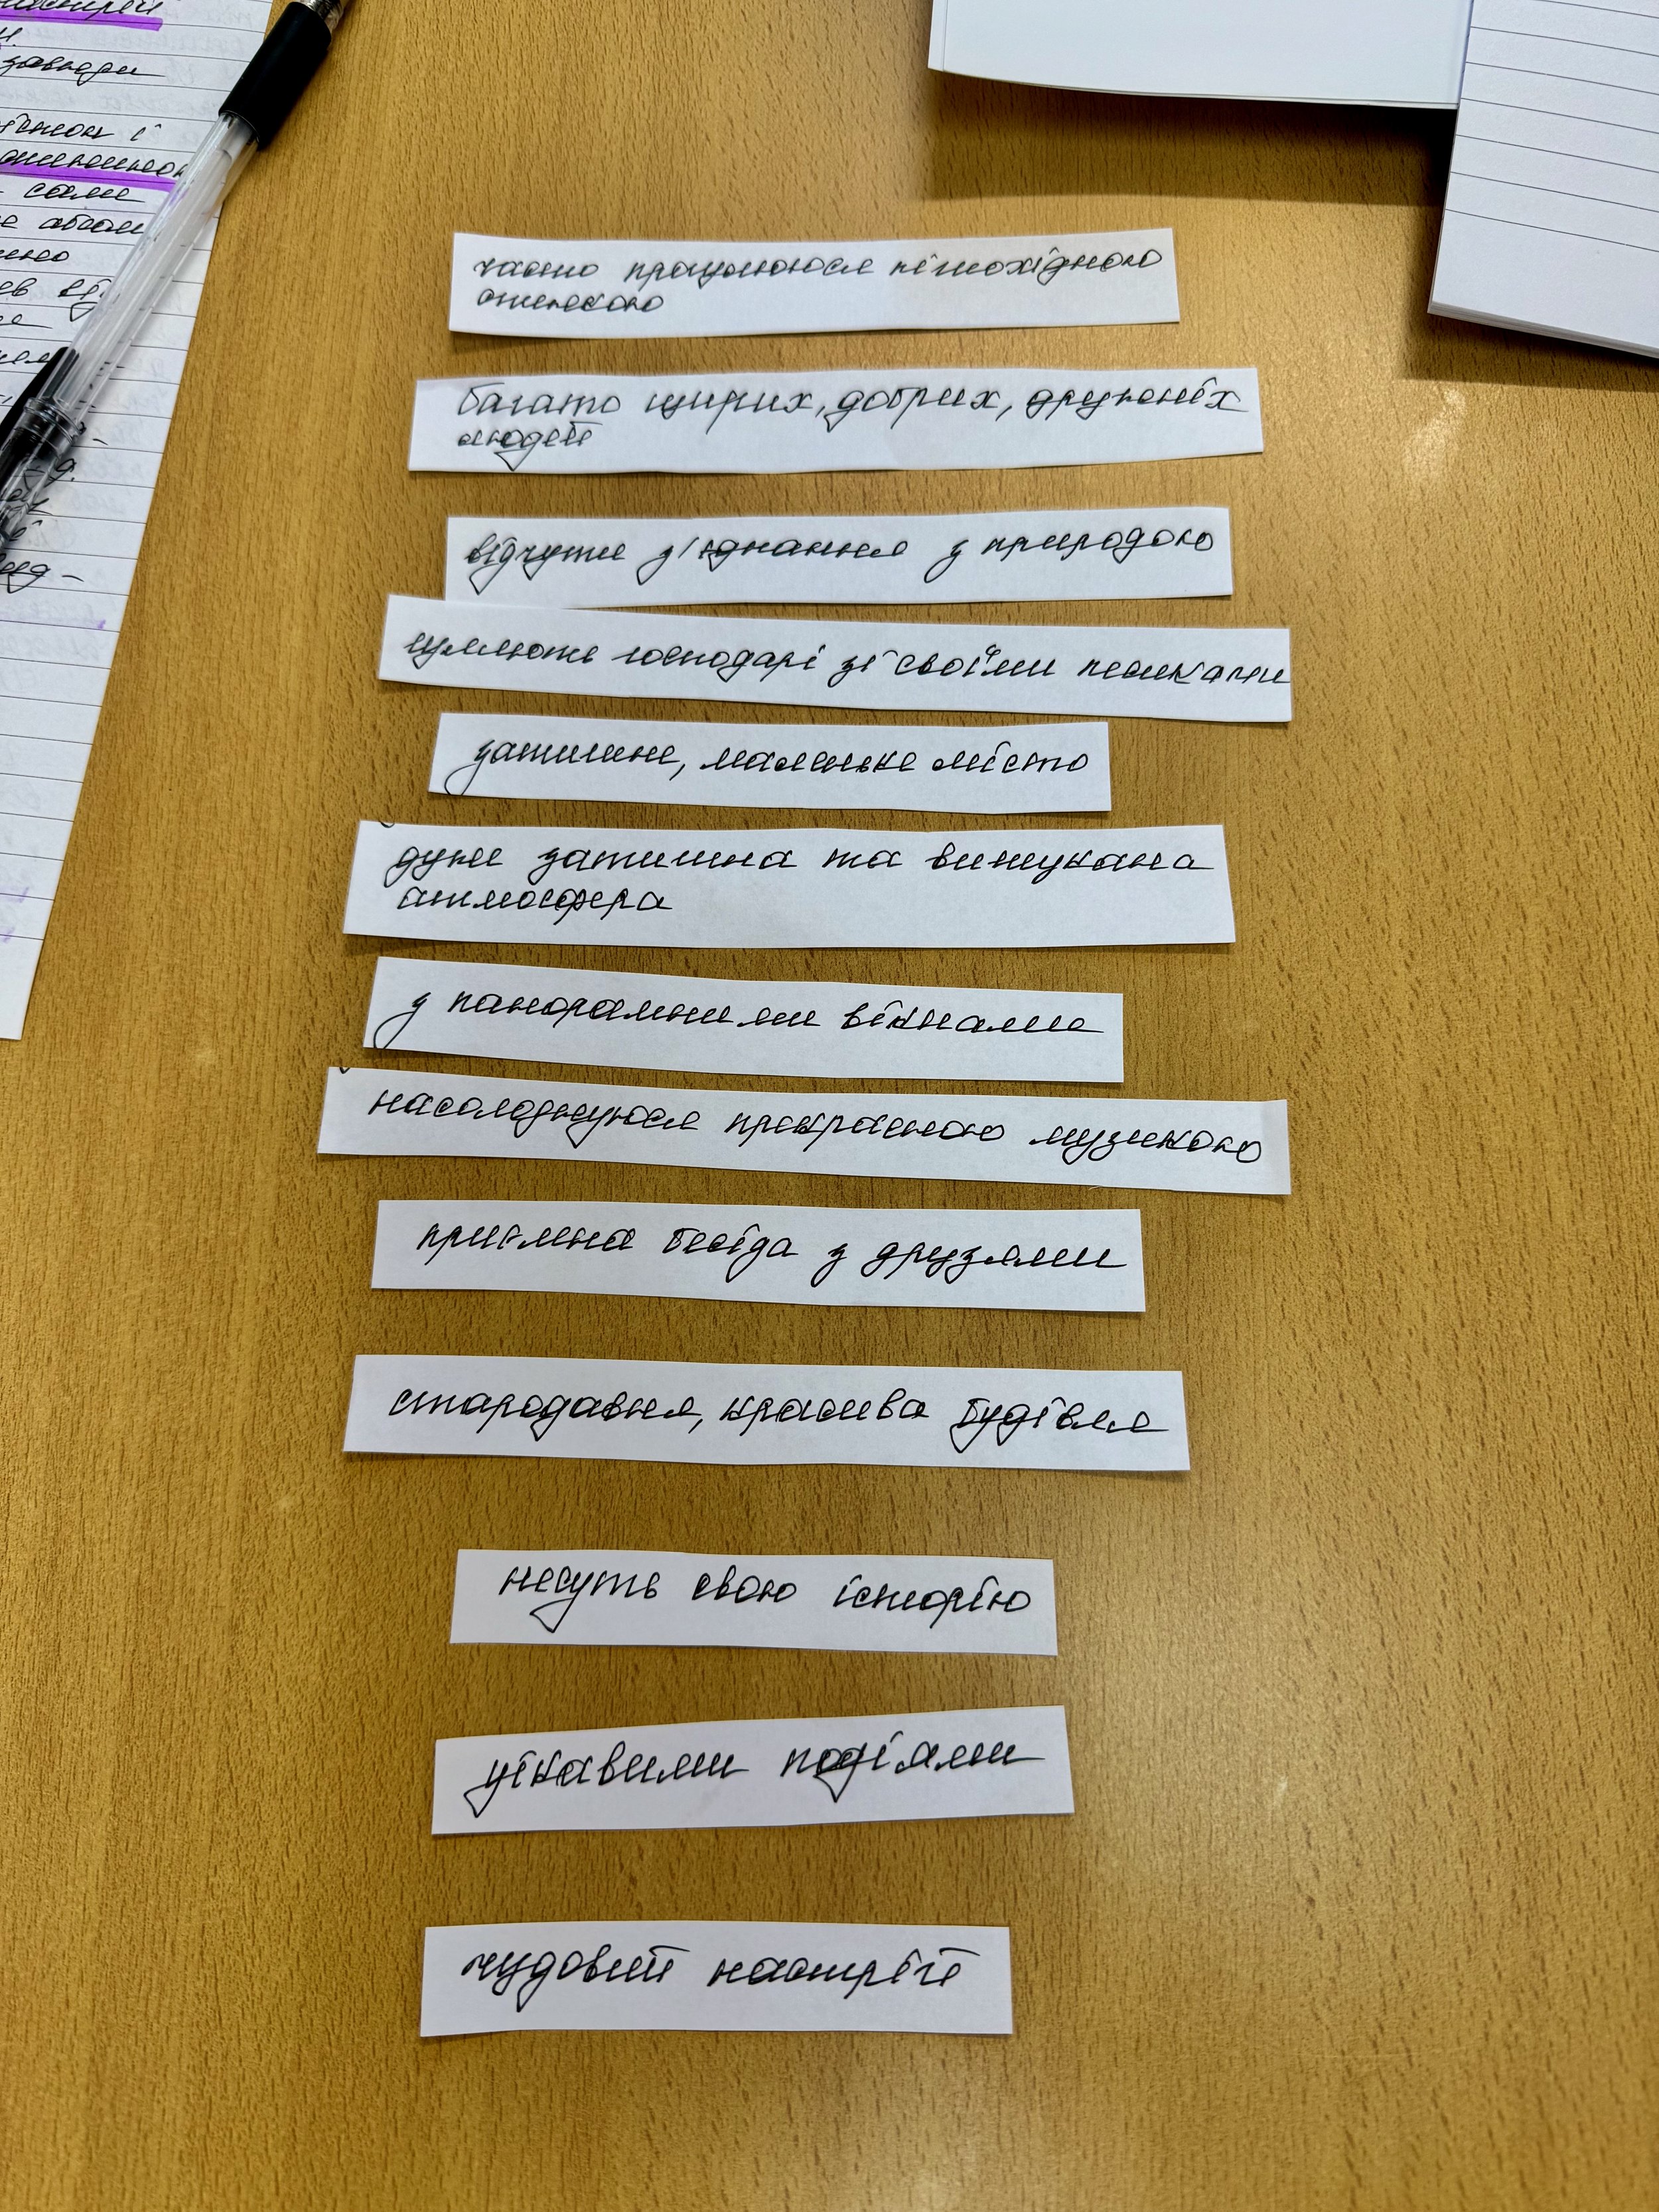 настрій
завжди
саме
часто прогулююся пішохідною
стежкою
багато щирих, добрих, дружніх
людей
відчути з'єднання з природою
гуляють господарі зі своїми песиками
затишне, маленьке місто
дуже затишна та вишукана
атмосфера
з панорамними вікнами
насолоджуюся прекрасною музикою
приємна бесіда з друзями
стародавня, красива будівля
несуть свою історію
цікавими подіями
чудовий настрій